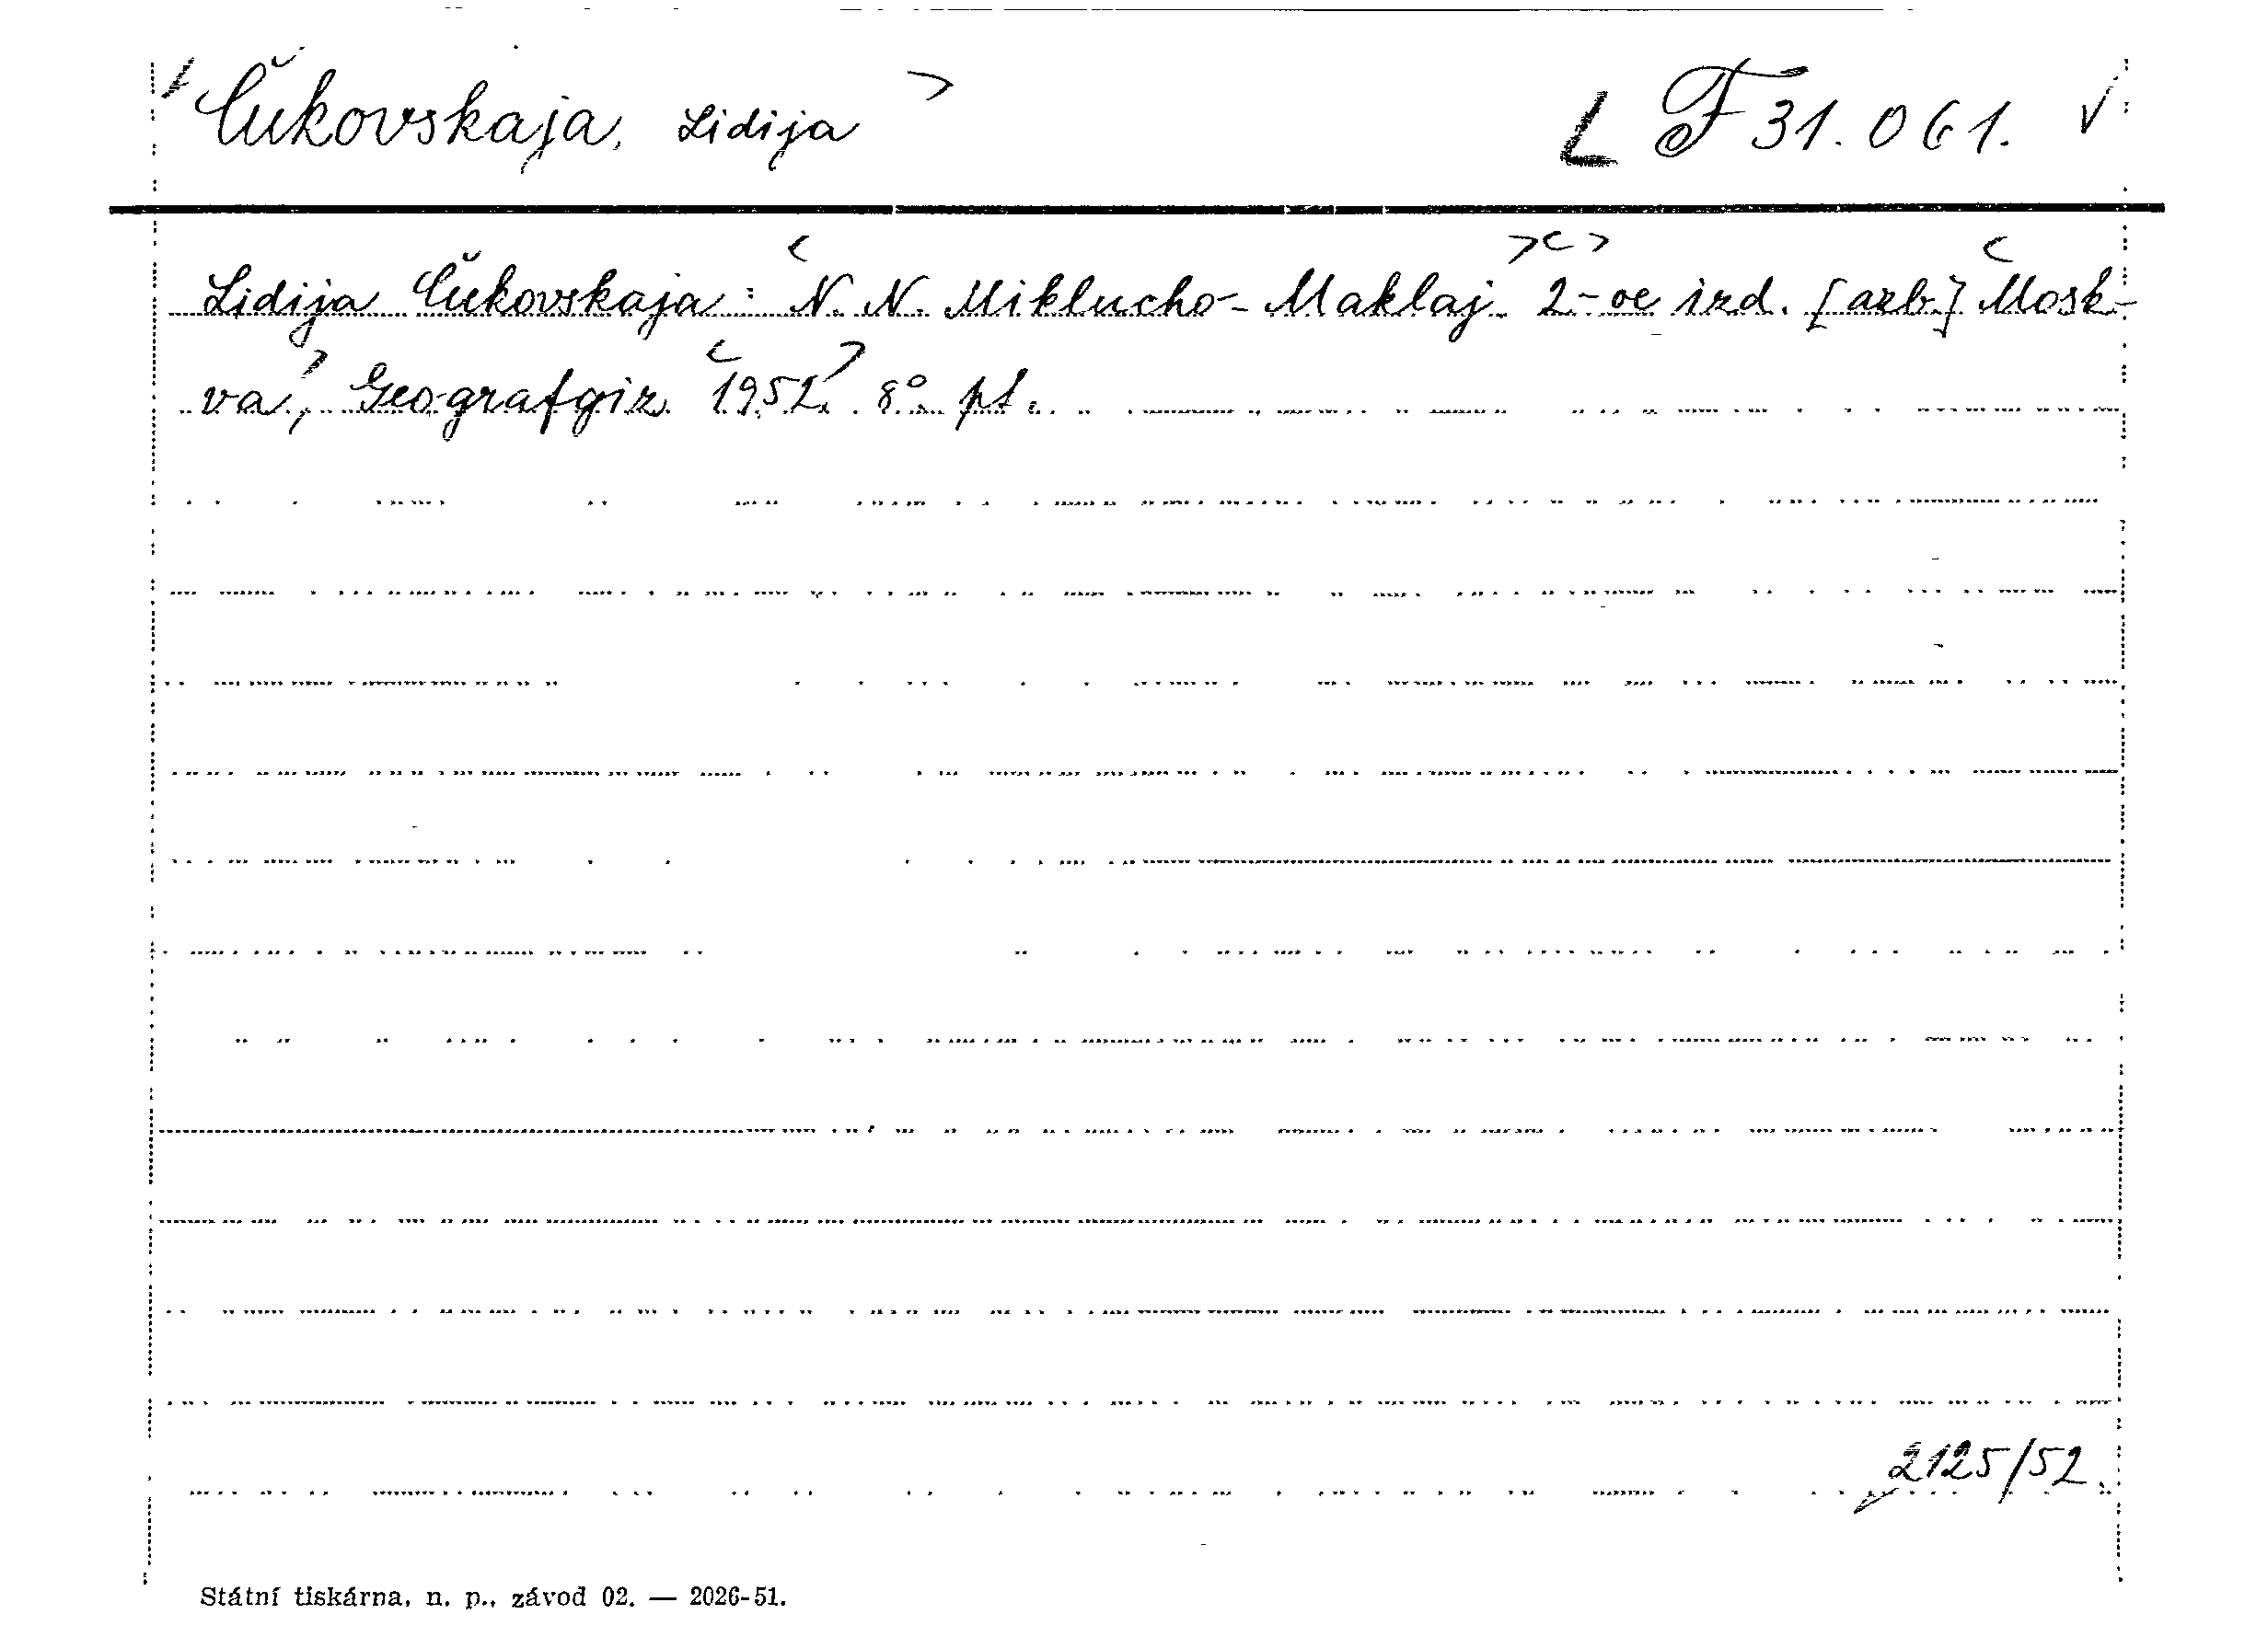 Čukovskaja, Lidija L F 31.061. √
Lidija Čukovskaja: N. N. Miklucho-Maklaj. 2-oe izd. [azb.] Mosk-
va, Geografgiz 1952. 8° pt.
2125/52.
Státní tiskárna, n. p., závod 02. — 2026-51.